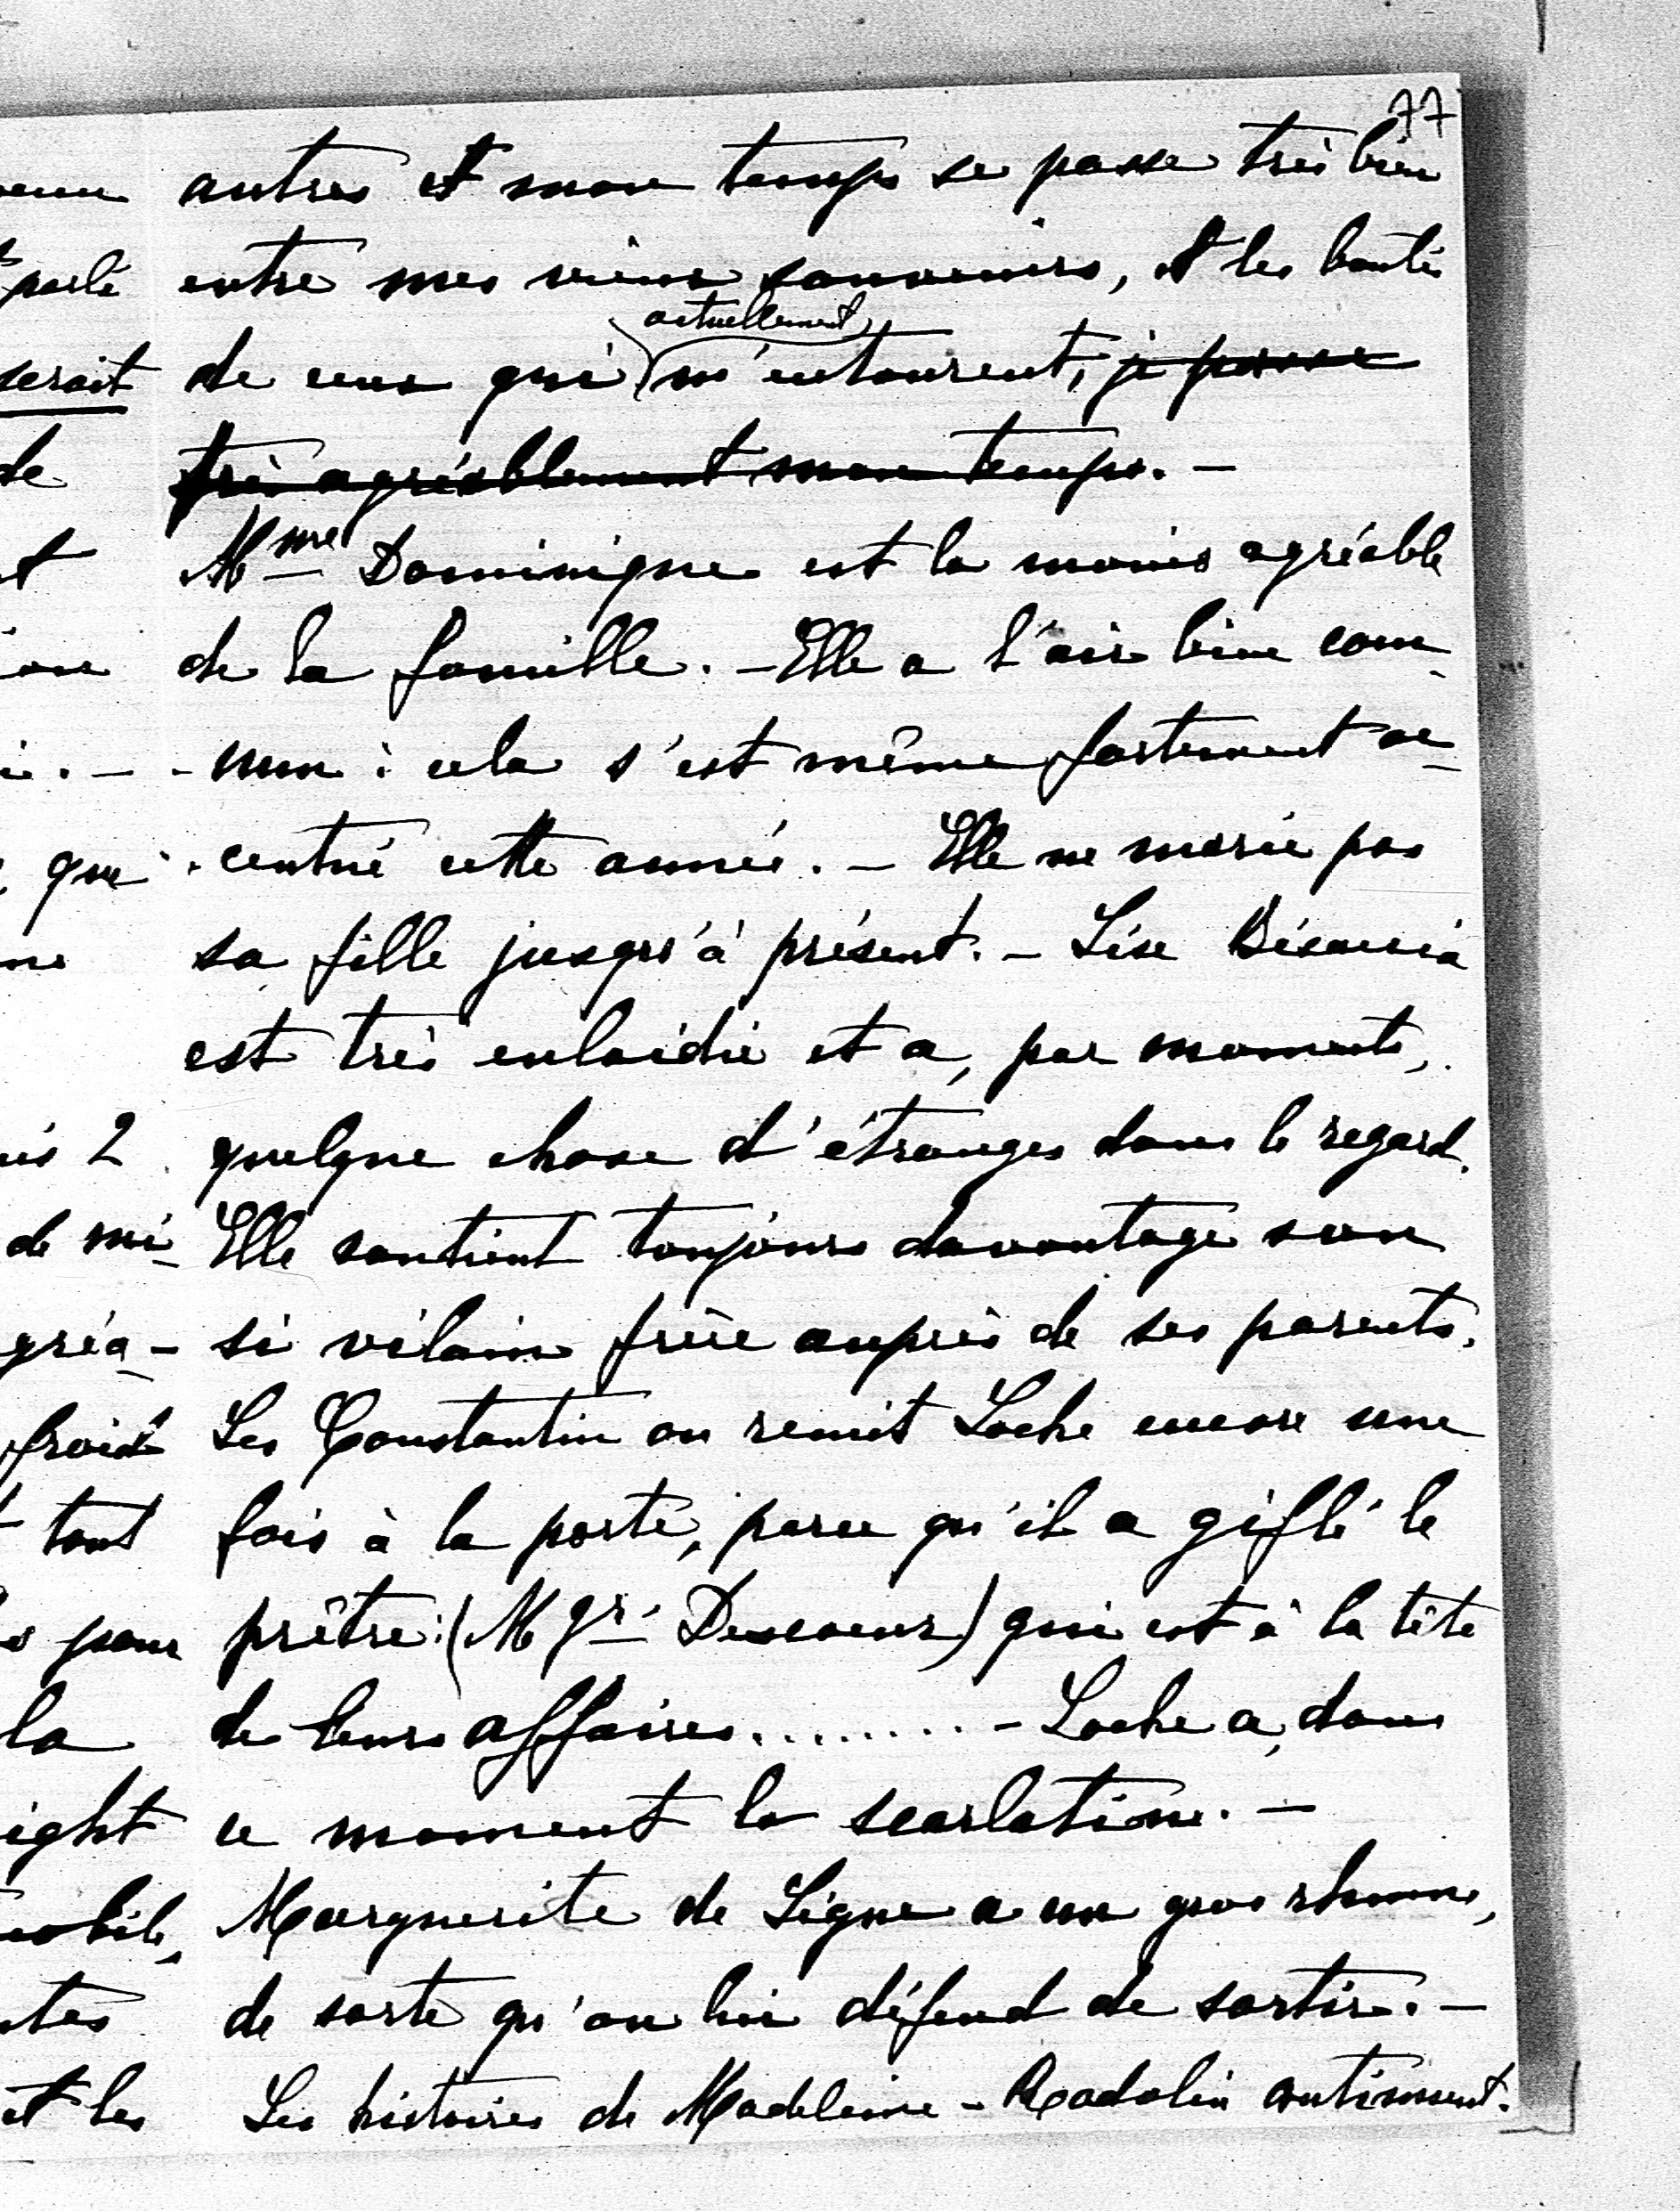 77
autres et mon temps se passe très bien
entre mes vieux souvenirs, et les bontés
actuellement
de ceux qui m'entourent, je passe
très agréablement mon temps. –
Mme Dominique est la moins agréable
de la famille. – Elle a l'air bien com-
- mun : cela s'est même fortement ac-
centué cette année. – Elle ne marie pas
sa fille jusqu'à présent. – Lise
est très enlaidie et a, par moments,
quelque chose d'étranges dans le regard.
Elle soutient toujours davantage son
si vilain frère auprès de ses parents.
Les Constantin on remit Loche encore une
fois à la porte, parce qu'il a giflé le
prêtre (Mgr ) qui est à la tête
de leurs affaires........ – Loche a, dans
ce moment la scarlatine. –
Marguerite de Ligne a un gros rhume,
de sorte qu'on lui défend de sortir. –
Les histoires de Madeleine – Radolin continuent.
parlé
serait
de
que
de mi-
gréa-
froid
tout
pour
la
ight
et les